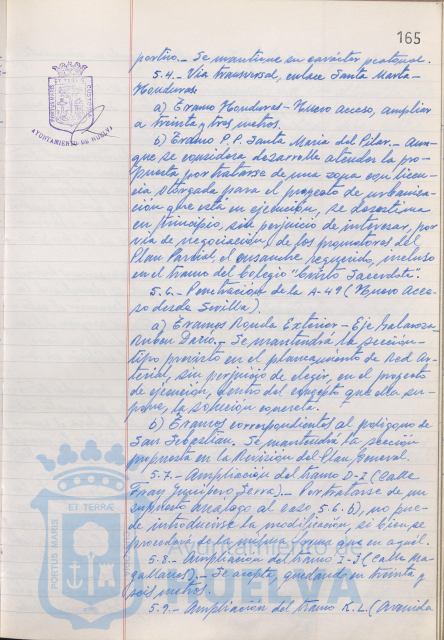 165
portivo.- Se mantiene su carácter peatonal.
5.4.- Vía transversal, enlace Santa Marta-
Honduras
a) Tramo Honduras-Nuevo Acceso, ampliar
a treinta y tres metros.
b) Tramo P.P. Santa María del Pilar.- Aun-
que se considera desarrolla atender la pro-
puesta por tratarse de una zona con licen-
cia otorgada para el proyecto de urbaniza-
ción que está en ejecución, se desestima
en principio, sin perjuicio de interesar, por
vía de negociación, de los promotores del
Plan Parcial el ensanche requerido, incluso
en el tramo del Colegio "Cristo Sacerdote".
5.6.- Penetración de la A-49 (Nuevo Acce-
so desde Sevilla).
a) Tramos Ronda Exterior-Eje Galaroza-
Rubén Darío.- Se mantendrá la sección-
tipo previsto en el planeamiento de Red Ar-
terial, sin perjuicio de elegir, en el proyecto
de ejecución, dentro del concepto que ella su-
pone, la solución concreta.
b) Tramos correspondientes al polígono de
San Sebastián. Se mantendrá la sección
propuesta en la Revisión del Plan General.
5.7.- Ampliación del tramo D-I (Calle
Fray Junípero Serra).- Por tratarse de un
supuesto análogo al caso 5.6.b), no pue-
de introducirse la modificación, si bien se
procederá de la misma forma que en aquél.
5.8.- Ampliación del tramo I-J (Calle Ma-
gallanes).- Se acepta, quedando en treinta y
seis metros.
5.9.- Ampliación del tramo K.L. (Avenida
AYUNTAMIENTO DE HUELVA
PORTUS MARIS ET TERRÆ CUSTODIA
Ayuntamiento de
HUELVA